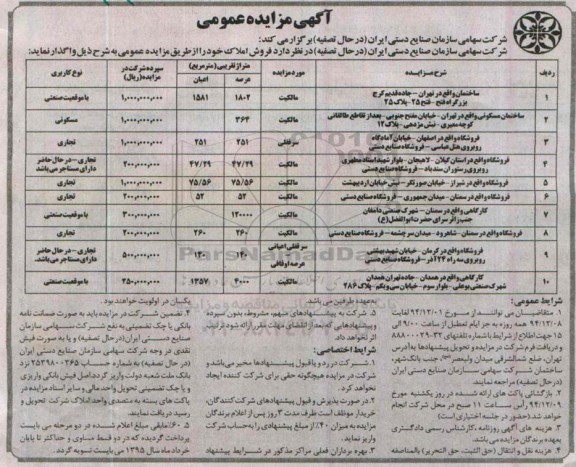 آگهی مزایده عمومی
شرکت سهامی سازمان صنایع دستی ایران (در حال تصفیه) برگزار می کند:
شرکت سهامی سازمان صنایع دستی ایران (در حال تصفیه) در نظر دارد فروش املاک خود را از طریق مزایده عمومی به شرح ذیل واگذار نماید:
ردیف شرح مزایده مورد مزایده متراژ تقریبی (مترمربع) عرصه اعیان سپرده شرکت در مزایده (ریال) نوع کاربری
۱ ساختمان واقع در تهران – جاده قدیم کرج بزرگراه فتح – فتح ۲۵ – پلاک ۲۵ مالکیت ۱۸۰۲ ۱۵۸۱ ۱,۰۰۰,۰۰۰,۰۰۰ با موقعیت صنعتی
۲ ساختمان مسکونی واقع در تهران – خیابان مفتح جنوبی – بعد از تقاطع طالقانی کوچه ممیری – نبش مژدهی – پلاک ۱۲ مالکیت ۳۶۴ ۱,۰۰۰,۰۰۰,۰۰۰ مسکونی
۳ فروشگاه واقع در اصفهان – خیابان آمادگاه روبروی هتل عباسی – فروشگاه صنایع دستی سرقفلی ۲۵۱ ۲۵۱ ۱,۰۰۰,۰۰۰,۰۰۰ تجاری
۴ فروشگاه واقع در استان گیلان – لاهیجان – بلوار شهید استاد مطهری روبروی رستوران سندباد – فروشگاه صنایع دستی مالکیت ۴۷/۲۹ ۴۷/۲۹ ۲۰۰,۰۰۰,۰۰۰ تجاری – در حال حاضر دارای مستاجر می باشد
۵ فروشگاه واقع در شیراز – خیابان حورتکر – نبش خیابان اردیبهشت مالکیت ۷۵/۵۶ ۷۵/۵۶ ۱,۰۰۰,۰۰۰,۰۰۰ تجاری
۶ فروشگاه واقع در سمنان – میدان جمهوری – فروشگاه صنایع دستی مالکیت ۵۲ ۵۲ ۲۰۰,۰۰۰,۰۰۰ تجاری
۷ کارگاهی واقع در سمنان – شهرک صنعتی دامغان جنب زائرسرای حضرت ابوالفضل (ع) مالکیت ۱۲۰۰۰۰ ۳۰۰,۰۰۰,۰۰۰ با موقعیت صنعتی
۸ فروشگاه واقع در سمنان – شاهرود – میدان سرچشمه – فروشگاه صنایع دستی مالکیت ۲۶۰ ۲۶۰ ۲۰۰,۰۰۰,۰۰۰ تجاری
۹ فروشگاه واقع در کرمان – خیابان شهید بهشتی روبروی سه راه ۲۴ آذر – فروشگاه صنایع دستی سرقفلی اعیانی عرصه اوقافی ۱۴۰ ۱۴۰ ۵۰۰,۰۰۰,۰۰۰ تجاری – در حال حاضر دارای مستاجر می باشد.
۱۰ کارگاهی واقع در همدان – جاده تهران همدان شهرک صنعتی بوعلی – بلوار سوم – خیابان سی و یکم – پلاک ۲۸۶ مالکیت ۴۰۰۰ ۱۳۵۷ ۲۵۰,۰۰۰,۰۰۰ با موقعیت صنعتی
شرایط عمومی:
۱. متقاضیان می توانند از مورخ ۹۴/۱۲/۰۱ لغایت
۹۴/۱۲/۰۸ همه روزه به جز ایام تعطیل از ساعت ۹/۰۰ الی
۱۵ جهت اطلاع از شرایط با شماره تلفنهای ۸۸۸۰۰۰۲۹-۳۲
و دریافت فرم شرکت در مزایده و تحویل پیشنهادها به آدرس
تهران، ضلع شمالشرقی میدان ولیعصر (عج)، جنب بانک شهر،
ساختمان شرکت سهامی سازمان صنایع دستی ایران
(در حال تصفیه) مراجعه نمایند.
۲. بازگشائی پاکت های ارائه شده در روز یکشنبه مورخ
۹۴/۱۲/۰۹ رأس ساعت ۱۱ صبح در محل شرکت انجام
خواهد شد (حضور در جلسه اختیاری است)
۳. هزینه های آگهی روزنامه، کارشناس رسمی دادگستری
بعهده برندگان مزایده می باشد.
۴. هزینه نقل و انتقال (حق الثبت، حق التحریر) بالمناصفه
بعهده طرفین می باشد.
۵. شرکت به پیشنهادهای مبهم، مشروط، بدون سپرده
و پیشنهادهایی که بعد از انقضای مهلت مقرر ارائه شود ترتیب
اثر نخواهد داد.
شرایط اختصاصی:
۱. شرکت در رد و یا قبول پیشنهادها مخیر می باشد و
شرکت در مزایده هیچگونه حقی برای شرکت کننده ایجاد
نخواهد کرد.
۲. در صورت پذیرش و قبول پیشنهادهای شرکت کنندگان،
خریدار موظف است ظرف مدت ۳ روز پس از اعلام برندگان
مزایده به میزان ۴۰٪ از مبلغ پیشنهادی را به حساب شرکت
واریز نماید.
۳. بهره برداران فعلی مراکز مذکور در شرایط پیشنهاد
یکسان در اولویت خواهند بود.
۴. تضمین شرکت در مزایده باید به صورت ضمانت نامه
بانکی یا چک تضمینی به نفع شرکت سهامی سازمان
صنایع دستی ایران (در حال تصفیه) و یا به صورت فیش
نقدی در وجه شرکت سهامی سازمان صنایع دستی ایران
(در حال تصفیه) به شماره حساب ۲۵۳۹۸۰۰۳۶۵ نزد
بانک ملت شعبه دولت واریز گردد اصل فیش بانکی واریزی
و یا چک تضمینی تحویل واحد مالی و سایر اسناد مزایده در
پاکت های بسته به متصدی واحد املاک شرکت تحویل و
رسید دریافت نمایند.
۵. ۶۰٪ مابقی مبلغ اعلام شده در دو مرحله می بایست
پرداخت گردیده که در دو قسط مساوی و حداکثر تا پایان
خرداد ماه سال ۱۳۹۵ می بایست تسویه گردد.